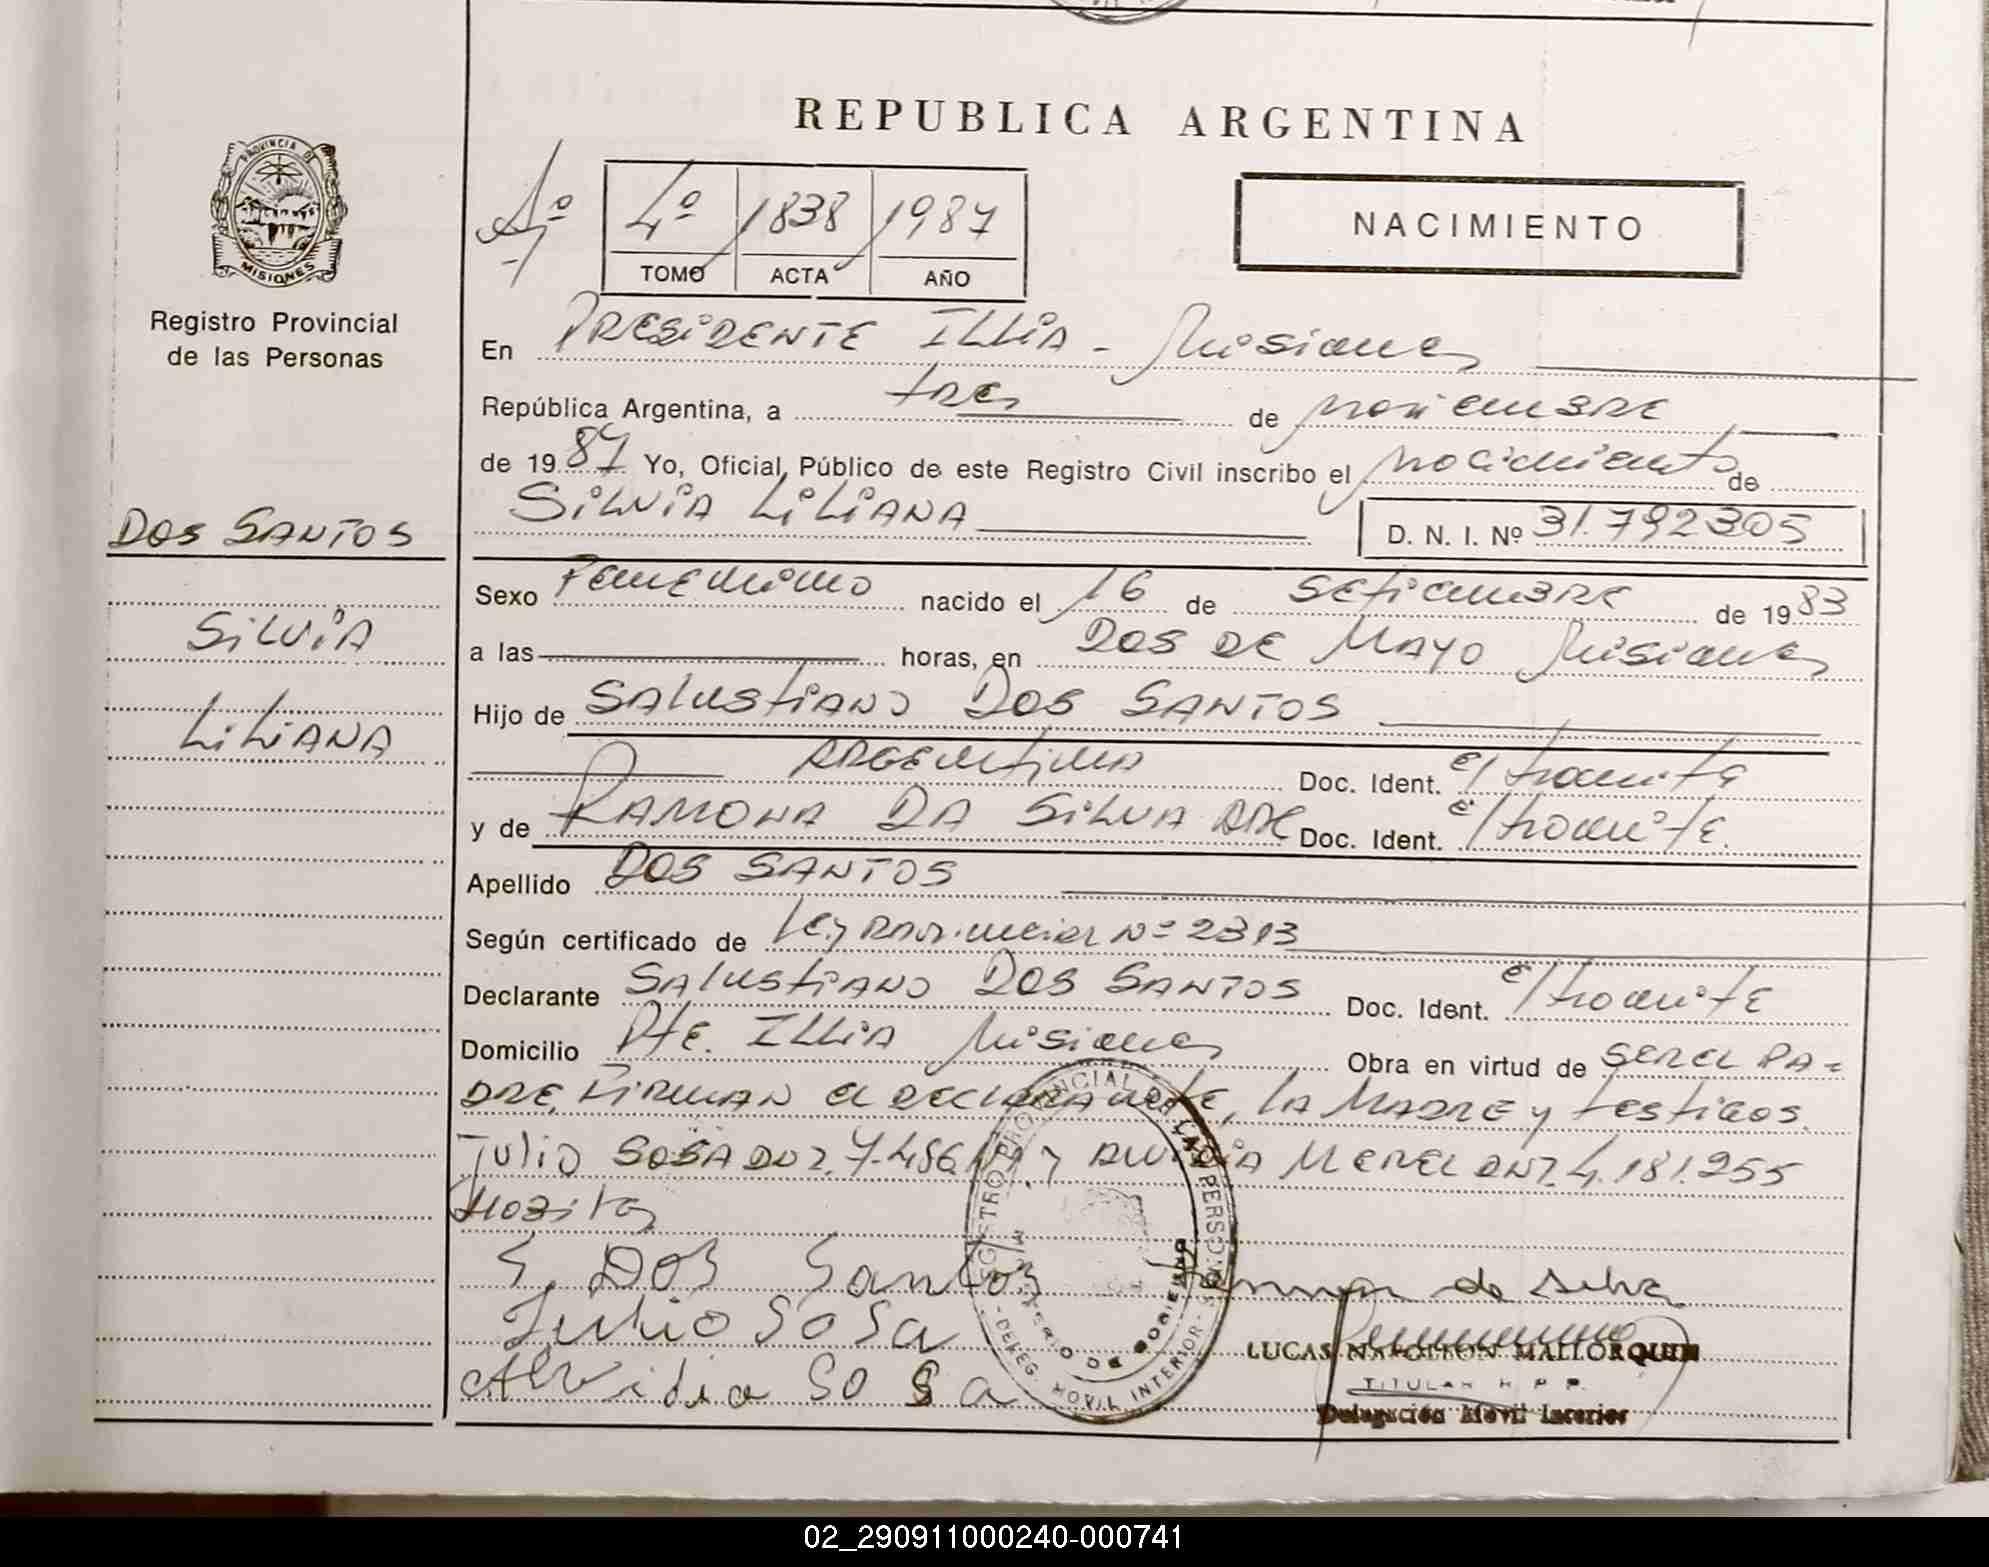 REPUBLICA ARGENTINA
PROVINCIA DE
MISIONES
Registro Provincial
de las Personas
4º 1838 1987
TOMO ACTA AÑO
NACIMIENTO
En PRESIDENTE ILLIA - Misiones
República Argentina, a tres de noviembre
de 1987 Yo, Oficial Público de este Registro Civil inscribo el nacimiento de
SILVIA LILIANA D. N. I. Nº 31.792305
DOS SANTOS
SILVIA
LILIANA
Sexo Femenino nacido el 16 de setiembre de 1983
a las horas, en DOS DE MAYO Misiones
Hijo de SALUSTIANO DOS SANTOS
ARGENTINA Doc. Ident. e/ tramite
y de RAMONA DA SILVA DE Doc. Ident. e/ tramite.
Apellido DOS SANTOS
Según certificado de Ley Provincial Nº 2313
Declarante SALUSTIANO DOS SANTOS Doc. Ident. e/ tramite
Domicilio Pte. ILLIA Misiones Obra en virtud de SER EL PA=
DRE, FIRMAN el DECLARANTE, LA MADRE y testigos.
Julio SOSA y 4.181.255
S. Dos Santos Ramona da Silva
Julio Sosa
Alvidia Sosa
LUCAS NAPOLEON MALLORQUIN
TITULAR R P P.
Delegación Movil Interior
REGISTRO PROVINCIAL DE LAS PERSONAS
MINISTERIO DE GOBIERNO
- DELEG. MOVIL INTERIOR -
02_290911000240-000741